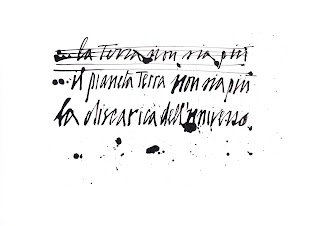 la Terra non sia più
il pianeta Terra non sia più
la discarica dell'universo.